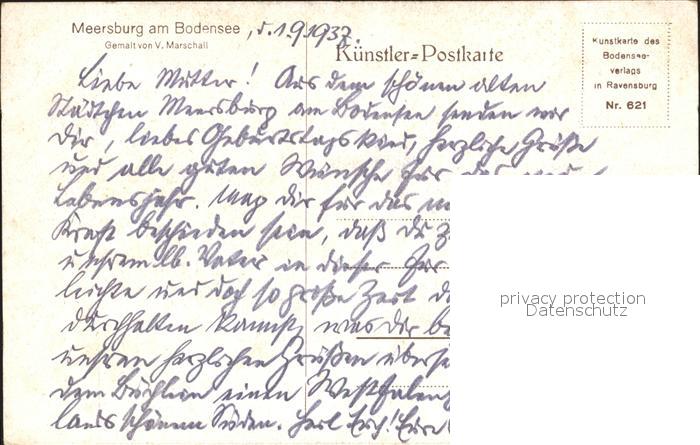 Meersburg am Bodensee, d. 1.9.1937.
Gemalt von V. Marschall
Künstler=Postkarte
Kunstkarte des
Bodensee-
verlags
in Ravensburg
Nr. 621
Liebe Mutter! Aus dem schönen alten
Städtchen Meersburg am Bodensee senden wir
Dir, liebes Geburtstagskind, herzliche Grüße
und alle guten Wünsche für das
Lebensjahr. Mag dir für das
Kraft beschieden sein, daß du
unsrem lb. Vater in dieser
leichte und doch so große Zeit
durchhalten kannst, was dir
unsren herzlichen Grüßen
dem Büchlein einen Westfalen
lands schönem Süden. Eure
privacy protection
Datenschutz